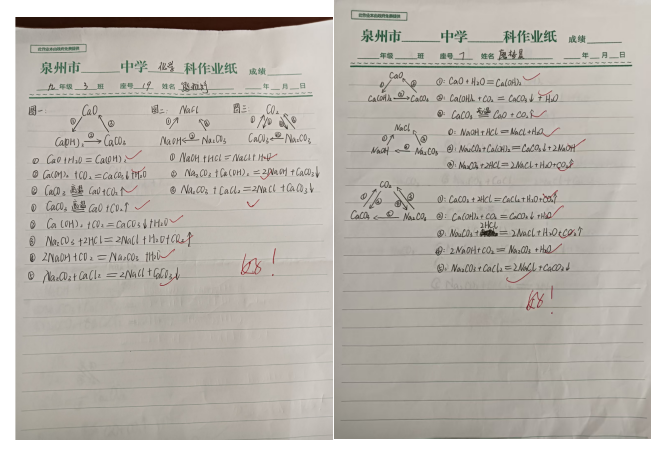 泉州市 中学 化学 科作业纸 成绩
九 年级 3 班 座号 19 姓名 年 月 日
图一: CaO 图二: NaCl 图三: CO₂
Ca(OH)₂ ② CaCO₃ NaOH ← Na₂CO₃ CaCO₃ ← Na₂CO₃
① CaO+H₂O=Ca(OH)₂ ① NaOH+HCl=NaCl+H₂O
② Ca(OH)₂+CO₂=CaCO₃↓+H₂O ② Na₂CO₃+Ca(OH)₂=2NaOH+CaCO₃↓
③ CaCO₃ 高温 CaO+CO₂↑ ③ Na₂CO₃+CaCl₂=2NaCl+CaCO₃↓
① CaCO₃ 高温 CaO+CO₂↑
② Ca(OH)₂+CO₂=CaCO₃↓+H₂O
③ Na₂CO₃+2HCl=2NaCl+H₂O+CO₂↑
④ 2NaOH+CO₂=Na₂CO₃+H₂O
⑤ Na₂CO₃+CaCl₂=2NaCl+CaCO₃↓
泉州市 中学 科作业纸 成绩
年级 班 座号 7 姓名 年 月 日
CaO ①: CaO+H₂O=Ca(OH)₂
Ca(OH)₂ ② CaCO₃ ②: Ca(OH)₂+CO₂=CaCO₃↓+H₂O
③: CaCO₃ 高温 CaO+CO₂↑
NaCl ①: NaOH+HCl=NaCl+H₂O
NaOH ← Na₂CO₃ ②: Na₂CO₃+Ca(OH)₂=CaCO₃↓+2NaOH
③: Na₂CO₃+2HCl=2NaCl+H₂O+CO₂↑
CO₂
CaCO₃ ← Na₂CO₃ ①: CaCO₃+2HCl=CaCl₂+H₂O+CO₂↑
②: Ca(OH)₂+CO₂=CaCO₃↓+H₂O
③: Na₂CO₃+2HCl=2NaCl+H₂O+CO₂↑
④: 2NaOH+CO₂=Na₂CO₃+H₂O
⑤: Na₂CO₃+CaCl₂=2NaCl+CaCO₃↓